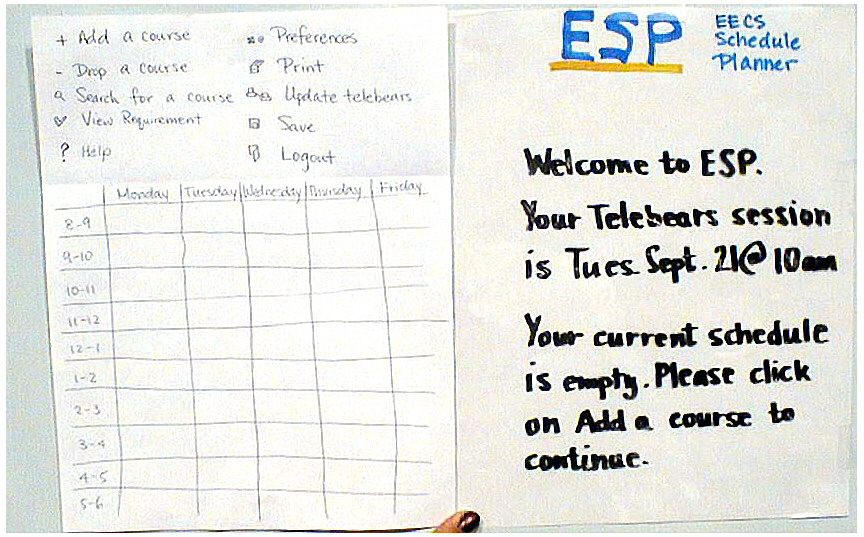 + Add a course
- Drop a course
Search for a course
View Requirement
? Help
Preferences
Print
Update telebears
Save
Logout
Monday Tuesday Wednesday Thursday Friday
8-9
9-10
10-11
11-12
12-1
1-2
2-3
3-4
4-5
5-6
ESP
EECS
Schedule
Planner
Welcome to ESP.
Your Telebears session
is Tues. Sept. 21@ 10am
Your current schedule
is empty. Please click
on Add a course to
continue.